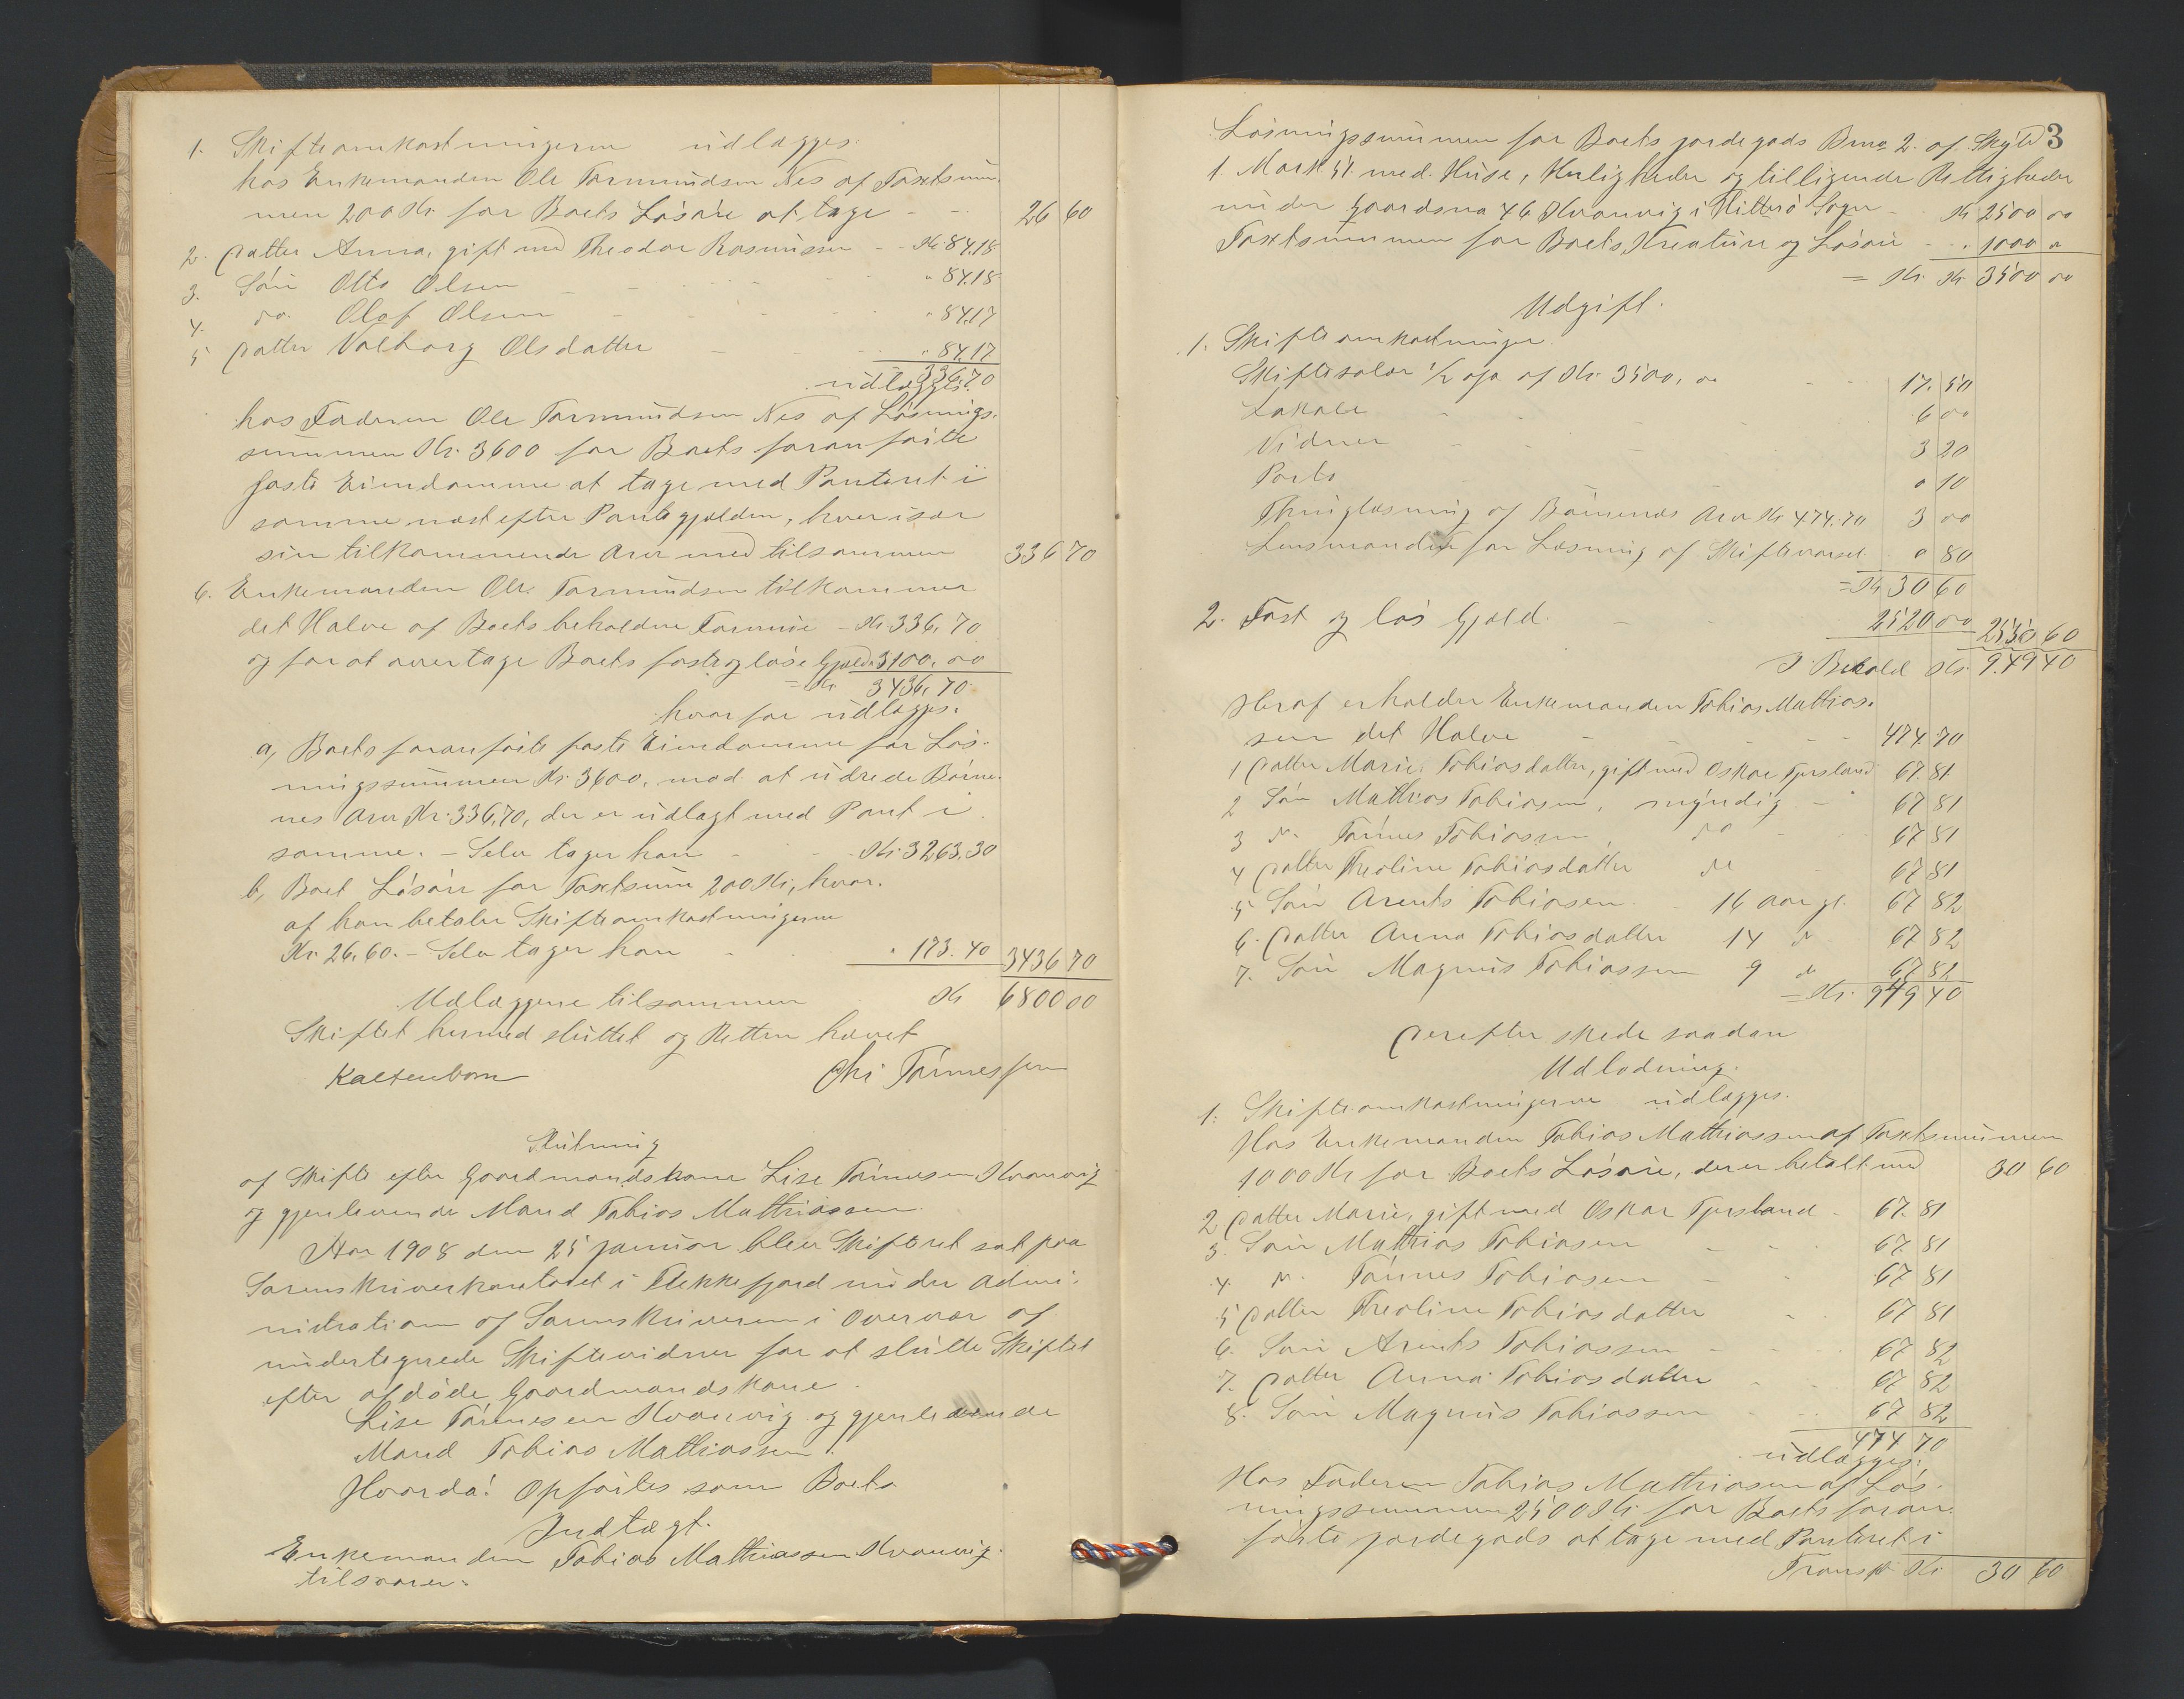 1. Skifteomkostningerne udlægges.
hos Enkemanden Ole Tormundsen Nes af Taxtsum-
men 200 Kr. for Boets Løsøre at tage - - 26 60
2. Datter Anna, gift med Theodor Rasmussen - - Kr 84.18
3. Søn Otto Olsen - - - " 84.18
4. do. Olaf Olsen - - - " 84.17
5 Datter Valborg Olsdatter - - " 84.17
336.70
udlægges.
hos Faderen Ole Tormundsen Nes af Løsnings-
summen Kr. 3600 for Boets foranførte
faste Eiendomme at tage med Panteret i
samme næst efter Pantegjælden, hver især
sin tilkommende Arv med tilsammen 336 70
6. Enkemanden Ole Tormundsen tilkommer
det Halve af Boets beholdne Formue - Kr. 336, 70
og for at overtage Boets faste og løse Gjæld " 3100, 00
= Kr. 3436, 70.
hvorfor udlægges.
a, Boets foranførte faste Eiendomme for Løs-
ningssummen Kr. 3600, mod at udrede Børne-
nes Arv Kr. 336,70, der er udlagt med Pant i
samme. - Selv tager han - - Kr. 3263,30
b, Boet Løsøre for Taxtsum 200 Kr, hvor-
af han betaler Skifteomkostningerne
Kr. 26,60. - Selv tager han - " 173.40 3436 70
Udlæggene tilsammen Kr 6800 00
Skiftet hermed sluttet og Retten hævet
Kaltenborn Chr Tønnessen
Slutning
af Skifte efter Gaardmandskone Lise Tønnesen Kvanvig
og gjenlevende Mand Tobias Mathiassen.
Aar 1908 den 25 Januar blev Skifteret sat paa
Sorenskriverkontoret i Flekkefjord under Admi-
nistration af Sorenskriveren i Overvær af
undertegnede Skiftevidner for at slutte Skiftet
efter afdøde Gaardmandskone
Lise Tønnesen Kvanvig og gjenlevende
Mand Tobias Mathiassen.
Hvorda! Opførtes som Boets
Indtægt.
Enkemanden Tobias Mathiassen Kvanvig
tilsvarer.
3
Løsningssummen for Boets jordegods Bno 2. af Skyld
1. Mark 51. med Huse, Herligheder og tilligende Rettigheder
under Gaardsno 46 Kvanvig i Hitterø Sogn - Kr 2500 00
Taxtsummen for Boets Kreature og Løsøre - - " 1000 "
= Kr. Kr. 3500 00
Udgift.
1. Skifteomkostninger
Skiftesalær ½ o/o af Kr. 3500, 00 - - 17. 50
Lokale - - 6 00
Vidner - - 3 20
Porto - 0 10
Thinglæsning af Børnenes Arv Kr 474.70 3 00
Lensmanden for Læsning af Skiftevarsel - 0 80
= Kr 30 60
2. Fast og løs Gjæld. - - 2520 00 2550 60
I Behold Kr. 949 40
Heraf erholder Enkemanden Tobias Mathias-
sen det Halve - - - 474. 70
1 Datter Marie Tobiasdatter, gift med Oskar Tjersland 67. 81
2 Søn Mathias Tobiasen, myndig - 67 81
3 do. Tønnes Tobiassen do - 67 81
4 Datter Theoline Tobiasdatter do - 67 81
5 Søn Arents Tobiasen 16 aar gl. 67 82
6. Datter Anna Tobiasdatter 14 do 67 82
7. Søn Magnus Tobiassen 9 do 67 82
= Kr. 949 40
Derefter skede saadan
Udlodning.
1. Skifteomkostningerne udlægges.
Hos Enkemanden Tobias Mathiassen af Taxtsummen
1000 Kr for Boets Løsøre, der er betalt med 30 60
2. Datter Marie, gift med Oskar Tjersland - 67. 81
3. Søn Mathias Tobiasen - - 67. 81
4. do. Tønnes Tobiasen - - 67 81
5 Datter Theoline Tobiasdatter - 67 81
6. Søn Arents Tobiassen - - 67 82
7. Datter Anna Tobiasdatter - 67 82
8. Søn Magnus Tobiassen - 67 82
474 70
udlægges.
Hos Faderen Tobias Mathiasen af Løs-
ningssummen 2500 Kr. for Boets foran-
førte jordegods at tage med Panteret i
Transp. Kr. 30 60